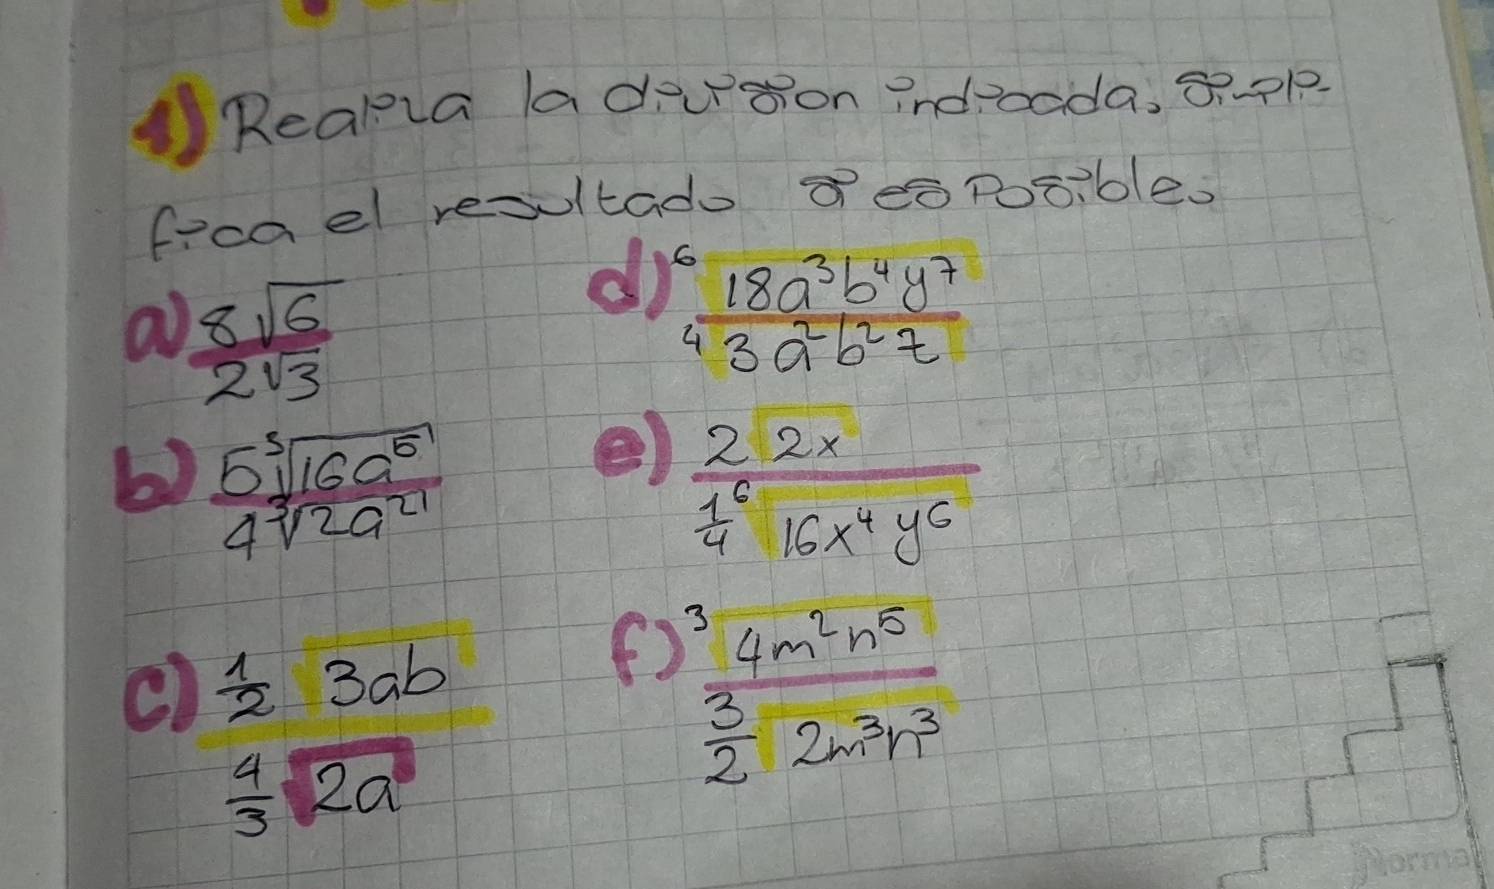 1) Realiza la division indicada, simpli-
fica el resultado si es Posible.
a) 8√6 / 2√3
d) ⁶√18a³b⁴y⁷ / ⁴√3a²b²z
b) 5³√16a⁵ / 4³√2a²
e) 2√2x / 1/4 ⁶√16x⁴y⁶
c) 1/2 √3ab / 4/3 √2a
f) ³√4m²n⁵ / 3/2 √2m³n³
Norma